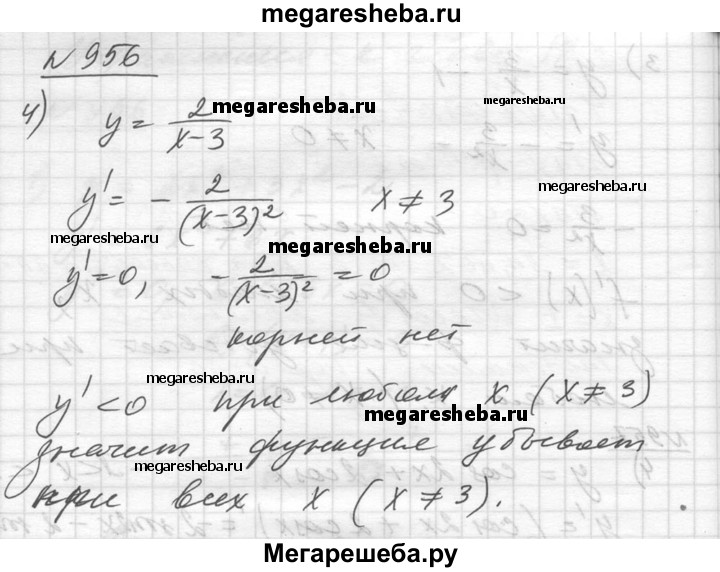 megaresheba.ru
№956
4) y = 2/(x-3)
megaresheba.ru
megaresheba.ru
y' = - 2/(x-3)² x ≠ 3
megaresheba.ru
megaresheba.ru
megaresheba.ru
y' = 0, - 2/(x-3)² = 0
корней нет
megaresheba.ru
y' < 0 при любом x (x ≠ 3)
megaresheba.ru
значит функция убывает
megaresheba.ru
при всех x (x ≠ 3).
Мегарешеба.ру